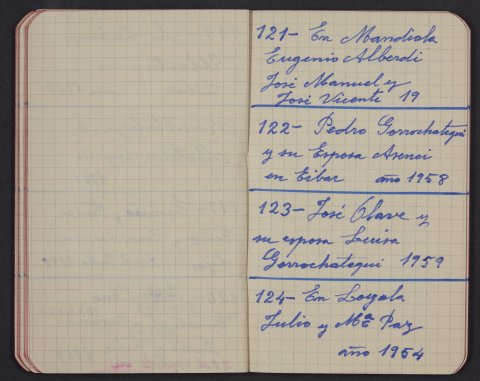 121- En Mandiola
Eugenio Alberdi
José Manuel y
José Vicente 19
122- Pedro Gorrochategui
y su Esposa Asenci
en Eibar año 1958
123- José Olave y
su esposa Luisa
Gorrochategui 1959
124- En Loyola
Julio y Mª Paz
año 1954